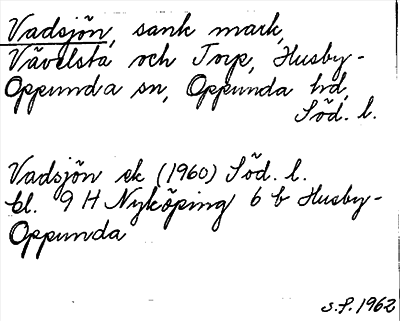 Vadsjön, sank mark,
Vävelsta och Torp, Husby-
Oppunda sn, Oppunda hd,
Söd. l.
Vadsjön ek (1960) Söd. l.
bl. 9 H Nyköping 6 b Husby-
Oppunda
S.F. 1962